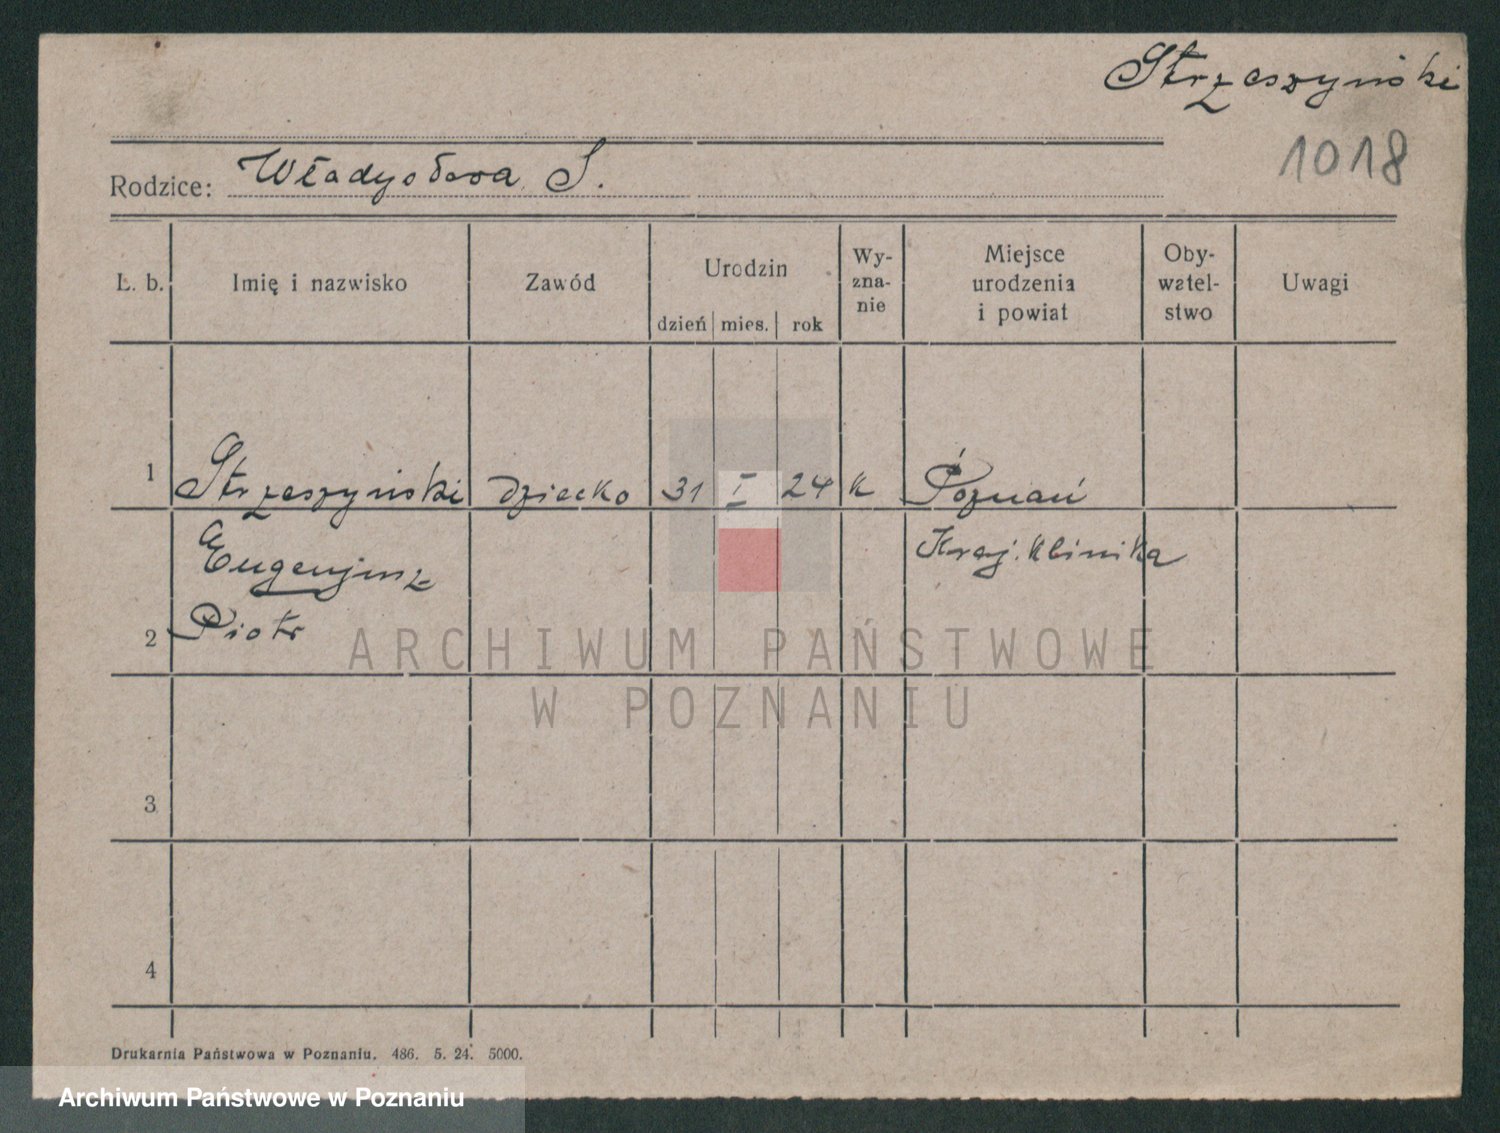 Strzeszyński
1018
Rodzice: Władysława S.
L. b. Imię i nazwisko Zawód Urodzin dzień mies. rok Wy-zna-nie Miejsce urodzenia i powiat Oby-watel-stwo Uwagi
1 Strzeszyński dziecko 31 I 24 k Poznań
Eugenjusz Kraj. Klinika
2 Piotr
ARCHIWUM PAŃSTWOWE
W POZNANIU
3
4
Drukarnia Państwowa w Poznaniu. 486. 5. 24. 5000.
Archiwum Państwowe w Poznaniu